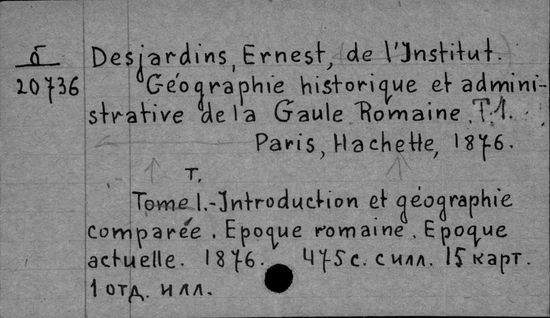 б
20736
Desjardins, Ernest, de l'Institut.
Géographie historique et admini-
strative de la Gaule Romaine. T.1.
Paris, Hachette, 1876.
T.
Tome I.-Introduction et géographie
comparée. Epoque romaine. Epoque
actuelle. 1876. 475 с. с илл. 15 карт.
1 отд. илл.